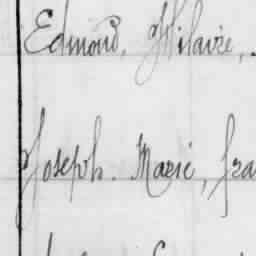 Edmond, Hilaire,
Joseph. Marie, fra